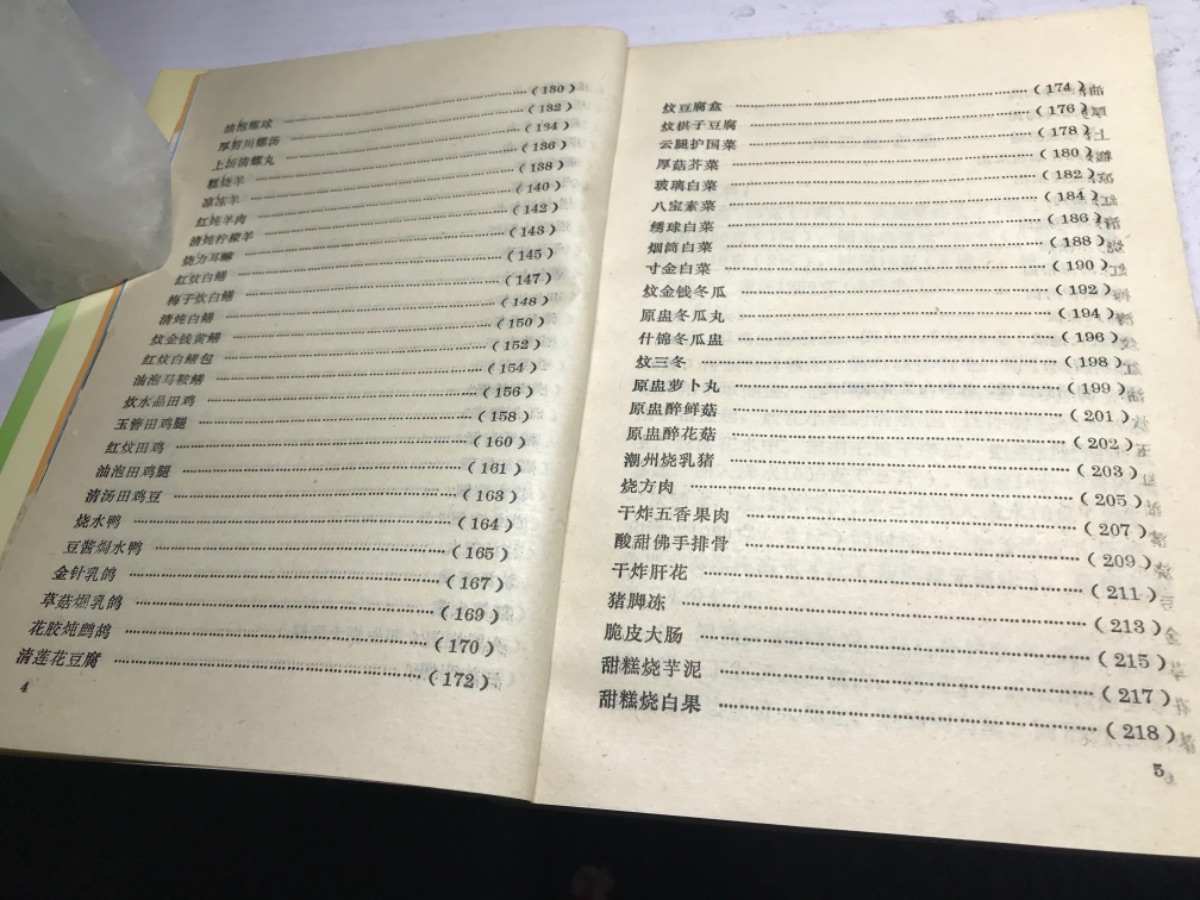 油泡螺球 ………………(130)
厚 川螺汤 ………………(132)
上汤清螺丸 ………………(134)
糕烧羊 ………………(136)
凉冻羊 ………………(138)
红炖羊肉 ………………(140)
清炖柠檬羊 ………………(142)
烧 耳鳝 ………………(143)
红炆白鳝 ………………(145)
梅子炊白鳝 ………………(147)
清炖白鳝 ………………(148)
炆金钱黄鳝 ………………(150)
红炆白鳝包 ………………(152)
油泡马鞍鳝 ………………(154)
炊水晶田鸡 ………………(156)
玉簪田鸡腿 ………………(158)
红炆田鸡 ………………(160)
油泡田鸡腿 ………………(161)
清汤田鸡豆 ………………(163)
烧水鸭 ………………(164)
豆酱焗水鸭 ………………(165)
金针乳鸽 ………………(167)
草菇焗乳鸽 ………………(169)
花胶炖鹧鸪 ………………(170)
清莲花豆腐 ………………(172)
4
炆豆腐盒 ………………(174)
炆棋子豆腐 ………………(176)
云腿护国菜 ………………(178)
厚菇芥菜 ………………(180)
玻璃白菜 ………………(182)
八宝素菜 ………………(184)
绣球白菜 ………………(186)
烟筒白菜 ………………(188)
寸金白菜 ………………(190)
炆金钱冬瓜 ………………(192)
原盅冬瓜丸 ………………(194)
什锦冬瓜盅 ………………(196)
炆三冬 ………………(198)
原盅萝卜丸 ………………(199)
原盅醉鲜菇 ………………(201)
原盅醉花菇 ………………(202)
潮州烧乳猪 ………………(203)
烧方肉 ………………(205)
干炸五香果肉 ………………(207)
酸甜佛手排骨 ………………(209)
干炸肝花 ………………(211)
猪脚冻 ………………(213)
脆皮大肠 ………………(215)
甜糕烧芋泥 ………………(217)
甜糕烧白果 ………………(218)
5